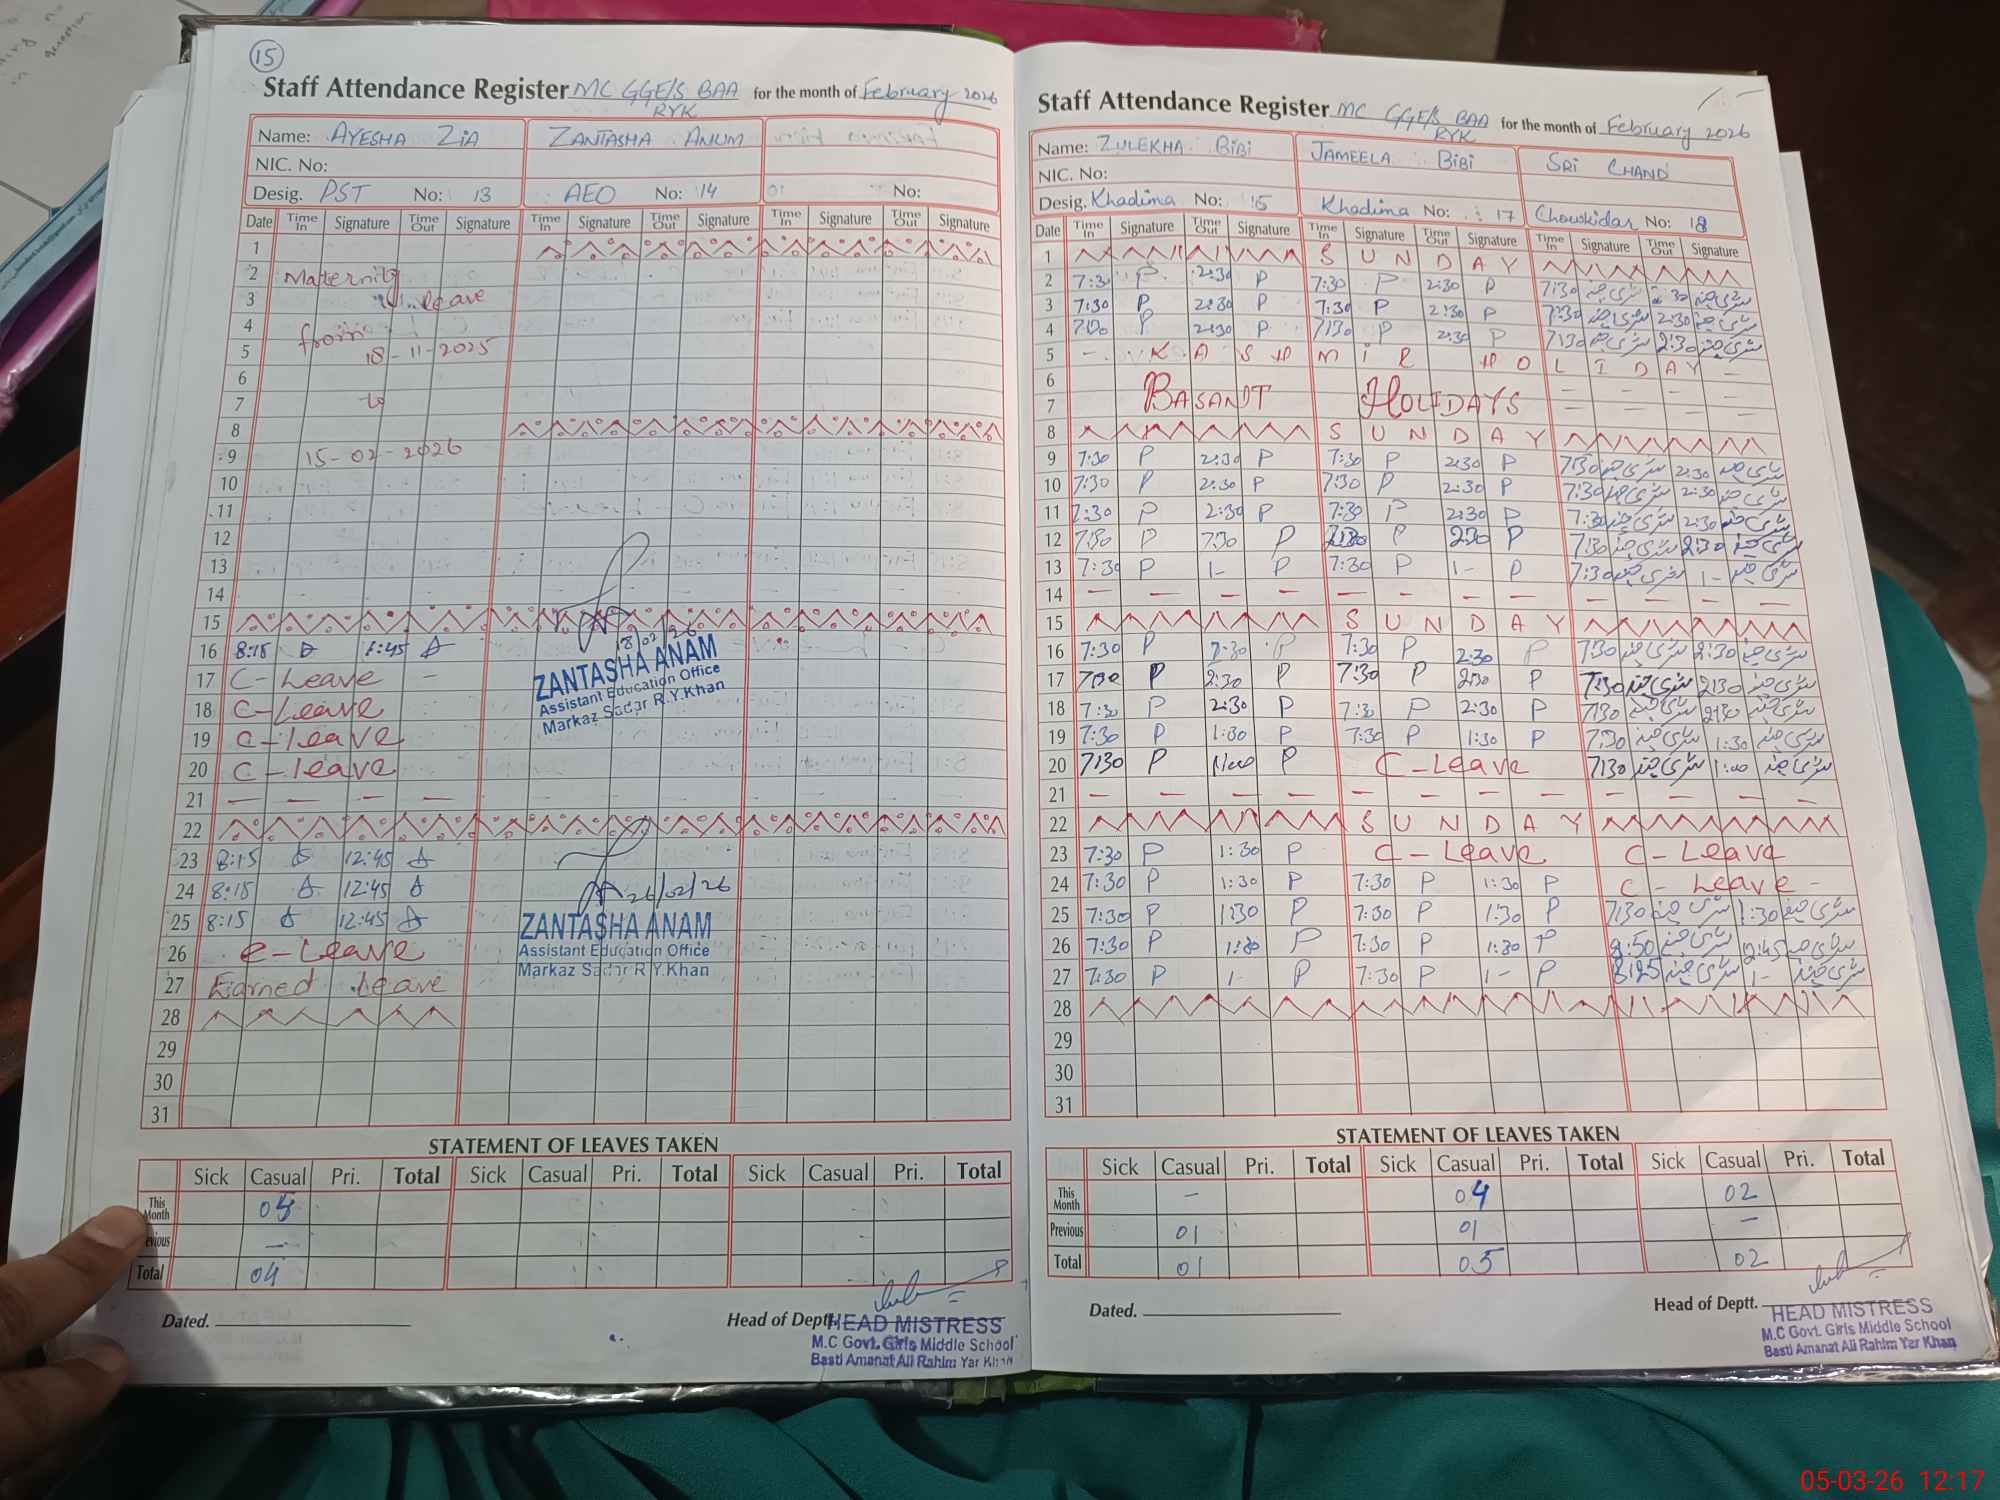 15
Staff Attendance Register MC GGE/S BAA RYK for the month of February 2026
Name: AYESHA ZIA ZANTASHA ANUM
NIC. No:
Desig. PST No: 13 AEO No: 14 No:
Date Time In Signature Time Out Signature Time In Signature Time Out Signature Time In Signature Time Out Signature
1
2 Maternity
3 leave
4 from
5 18-11-2025
6
7 to
8
9 15-02-2026
10
11
12
13
14
15
16 8:15 1:45
18/02/26
17 C-Leave –
18 C-Leave
19 C-leave
20 C-leave
ZANTASHA ANAM
Assistant Education Office
Markaz Sadar R.Y.Khan
21 — — — —
22
23 8:15 12:45
24 8:15 12:45
25 8:15 12:45
26/02/26
26 C-Leave
27 Earned Leave
ZANTASHA ANAM
Assistant Education Office
Markaz Sadar R.Y.Khan
28
29
30
31
STATEMENT OF LEAVES TAKEN
Sick Casual Pri. Total Sick Casual Pri. Total Sick Casual Pri. Total
This Month
Previous —
Total 04
Dated. Head of Deptt.
HEAD MISTRESS
M.C Govt. Girls Middle School
Basti Amanat Ali Rahim Yar Khan
Staff Attendance Register MC GGE/S BAA RYK for the month of February 2026
Name: ZULEKHA BIBI JAMEELA BIBI SRI CHAND
NIC. No:
Desig. Khadima No: 15 Khadima No: 17 Chowkidar No: 18
Date Time In Signature Time Out Signature Time In Signature Time Out Signature Time In Signature Time Out Signature
1 SUNDAY
2 7:30 P 2:30 P 7:30 P 2:30 P 7:30 سری چند 2:30 سری چند
3 7:30 P 2:30 P 7:30 P 2:30 P 7:30 سری چند 2:30 سری چند
4 7:30 P 2:30 P 7:30 P 2:30 P 7:30 سری چند 2:30 سری چند
5 – KASHMIR HOLIDAY –
6 BASANT HOLIDAYS – –
7 – – –
8 SUNDAY
9 7:30 P 2:30 P 7:30 P 2:30 P 7:30 سری چند 2:30 سری چند
10 7:30 P 2:30 P 7:30 P 2:30 P 7:30 سری چند 2:30 سری چند
11 7:30 P 2:30 P 7:30 P 2:30 P 7:30 سری چند 2:30 سری چند
12 7:30 P 7:30 P P 2:30 P 7:30 سری چند 2:30 سری چند
13 7:30 P 1- P 7:30 P 1- P 7:30 سری چند 1- سری چند
14 — — — — — — — — — — — —
15 SUNDAY
16 7:30 P 2:30 P 7:30 P 2:30 P 7:30 سری چند 2:30 سری چند
17 7:30 P 2:30 P 7:30 P 2:30 P 7:30 سری چند 2:30 سری چند
18 7:30 P 2:30 P 7:30 P 2:30 P 7:30 سری چند 2:30 سری چند
19 7:30 P 1:30 P 7:30 P 1:30 P 7:30 سری چند 1:30 سری چند
20 7:30 P 1:00 P C-Leave 7:30 سری چند 1:00 سری چند
21 — — — — — — — — — — — —
22 SUNDAY
23 7:30 P 1:30 P C-Leave C-Leave
24 7:30 P 1:30 P 7:30 P 1:30 P C-Leave-
25 7:30 P 1:30 P 7:30 P 1:30 P 7:30 سری چند 1:30 سری چند
26 7:30 P 1:30 P 7:30 P 1:30 P سری چند سری چند
27 7:30 P 1- P 7:30 P 1- P سری چند 1- سری چند
28
29
30
31
STATEMENT OF LEAVES TAKEN
Sick Casual Pri. Total Sick Casual Pri. Total Sick Casual Pri. Total
This Month – 04 02
Previous 01 01 –
Total 01 05 02
Dated. Head of Deptt.
HEAD MISTRESS
M.C Govt. Girls Middle School
Basti Amanat Ali Rahim Yar Khan
05-03-26 12:17